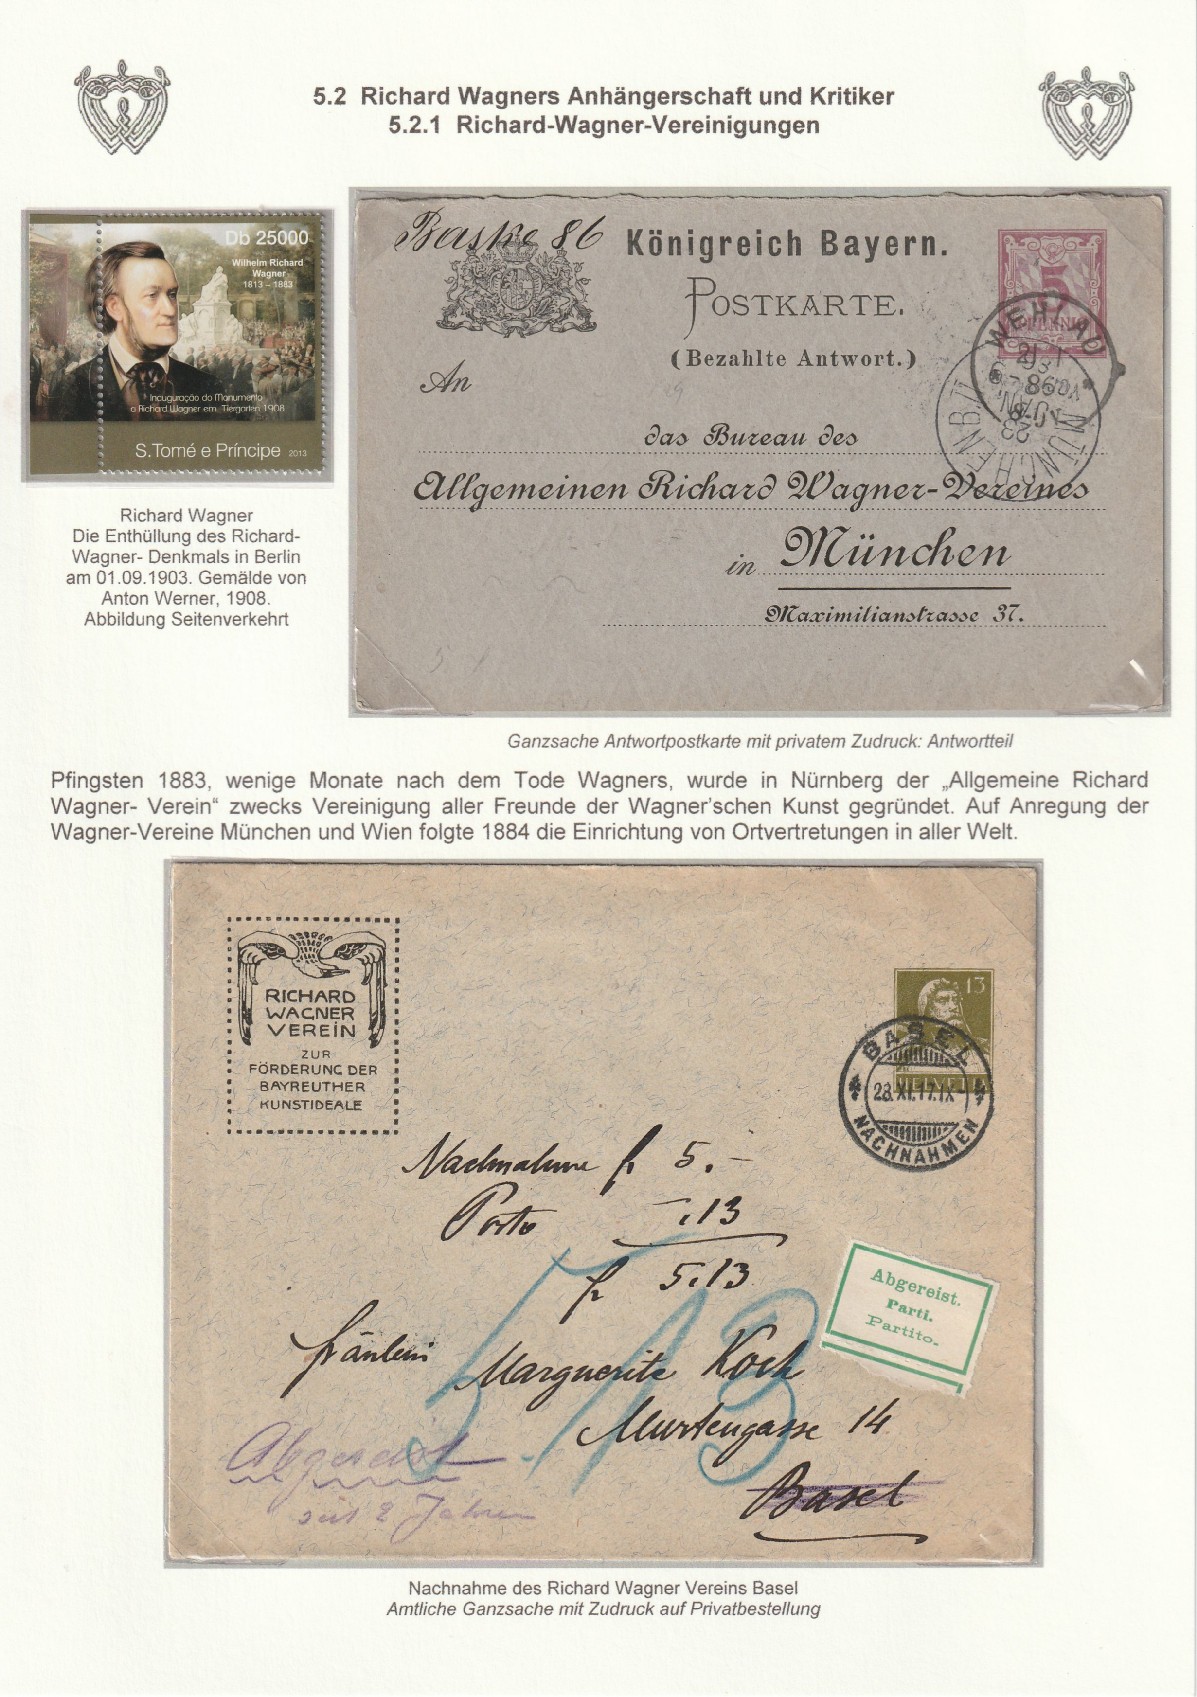 5.2 Richard Wagners Anhängerschaft und Kritiker
5.2.1 Richard-Wagner-Vereinigungen
Db 25000
Wilhelm Richard
Wagner
1813 – 1883
Inauguração do Monumento
a Richard Wagner em Tiergarten 1908
S.Tomé e Príncipe 2013
Richard Wagner
Die Enthüllung des Richard-
Wagner- Denkmals in Berlin
am 01.09.1903. Gemälde von
Anton Werner, 1908.
Abbildung Seitenverkehrt
86
Königreich Bayern.
POSTKARTE.
(Bezahlte Antwort.)
5
PFENNIG
WEHLAU
MÜNCHEN
An
das Bureau des
Allgemeinen Richard Wagner-Vereines
in München
Maximilianstrasse 37.
Ganzsache Antwortpostkarte mit privatem Zudruck: Antwortteil
Pfingsten 1883, wenige Monate nach dem Tode Wagners, wurde in Nürnberg der „Allgemeine Richard
Wagner- Verein“ zwecks Vereinigung aller Freunde der Wagner'schen Kunst gegründet. Auf Anregung der
Wagner-Vereine München und Wien folgte 1884 die Einrichtung von Ortvertretungen in aller Welt.
RICHARD
WAGNER
VEREIN
ZUR
FÖRDERUNG DER
BAYREUTHER
KUNSTIDEALE
13
BASEL
28.XI.17.IX-
NACHNAHMEN
Nachnahme fr 5.–
Porto –.13
fr 5.13
513
Abgereist.
Parti.
Partito.
Fräulein
Marguerite Koch
Murtengasse 14
Basel
Abgereist
seit 2 Jahren
Nachnahme des Richard Wagner Vereins Basel
Amtliche Ganzsache mit Zudruck auf Privatbestellung